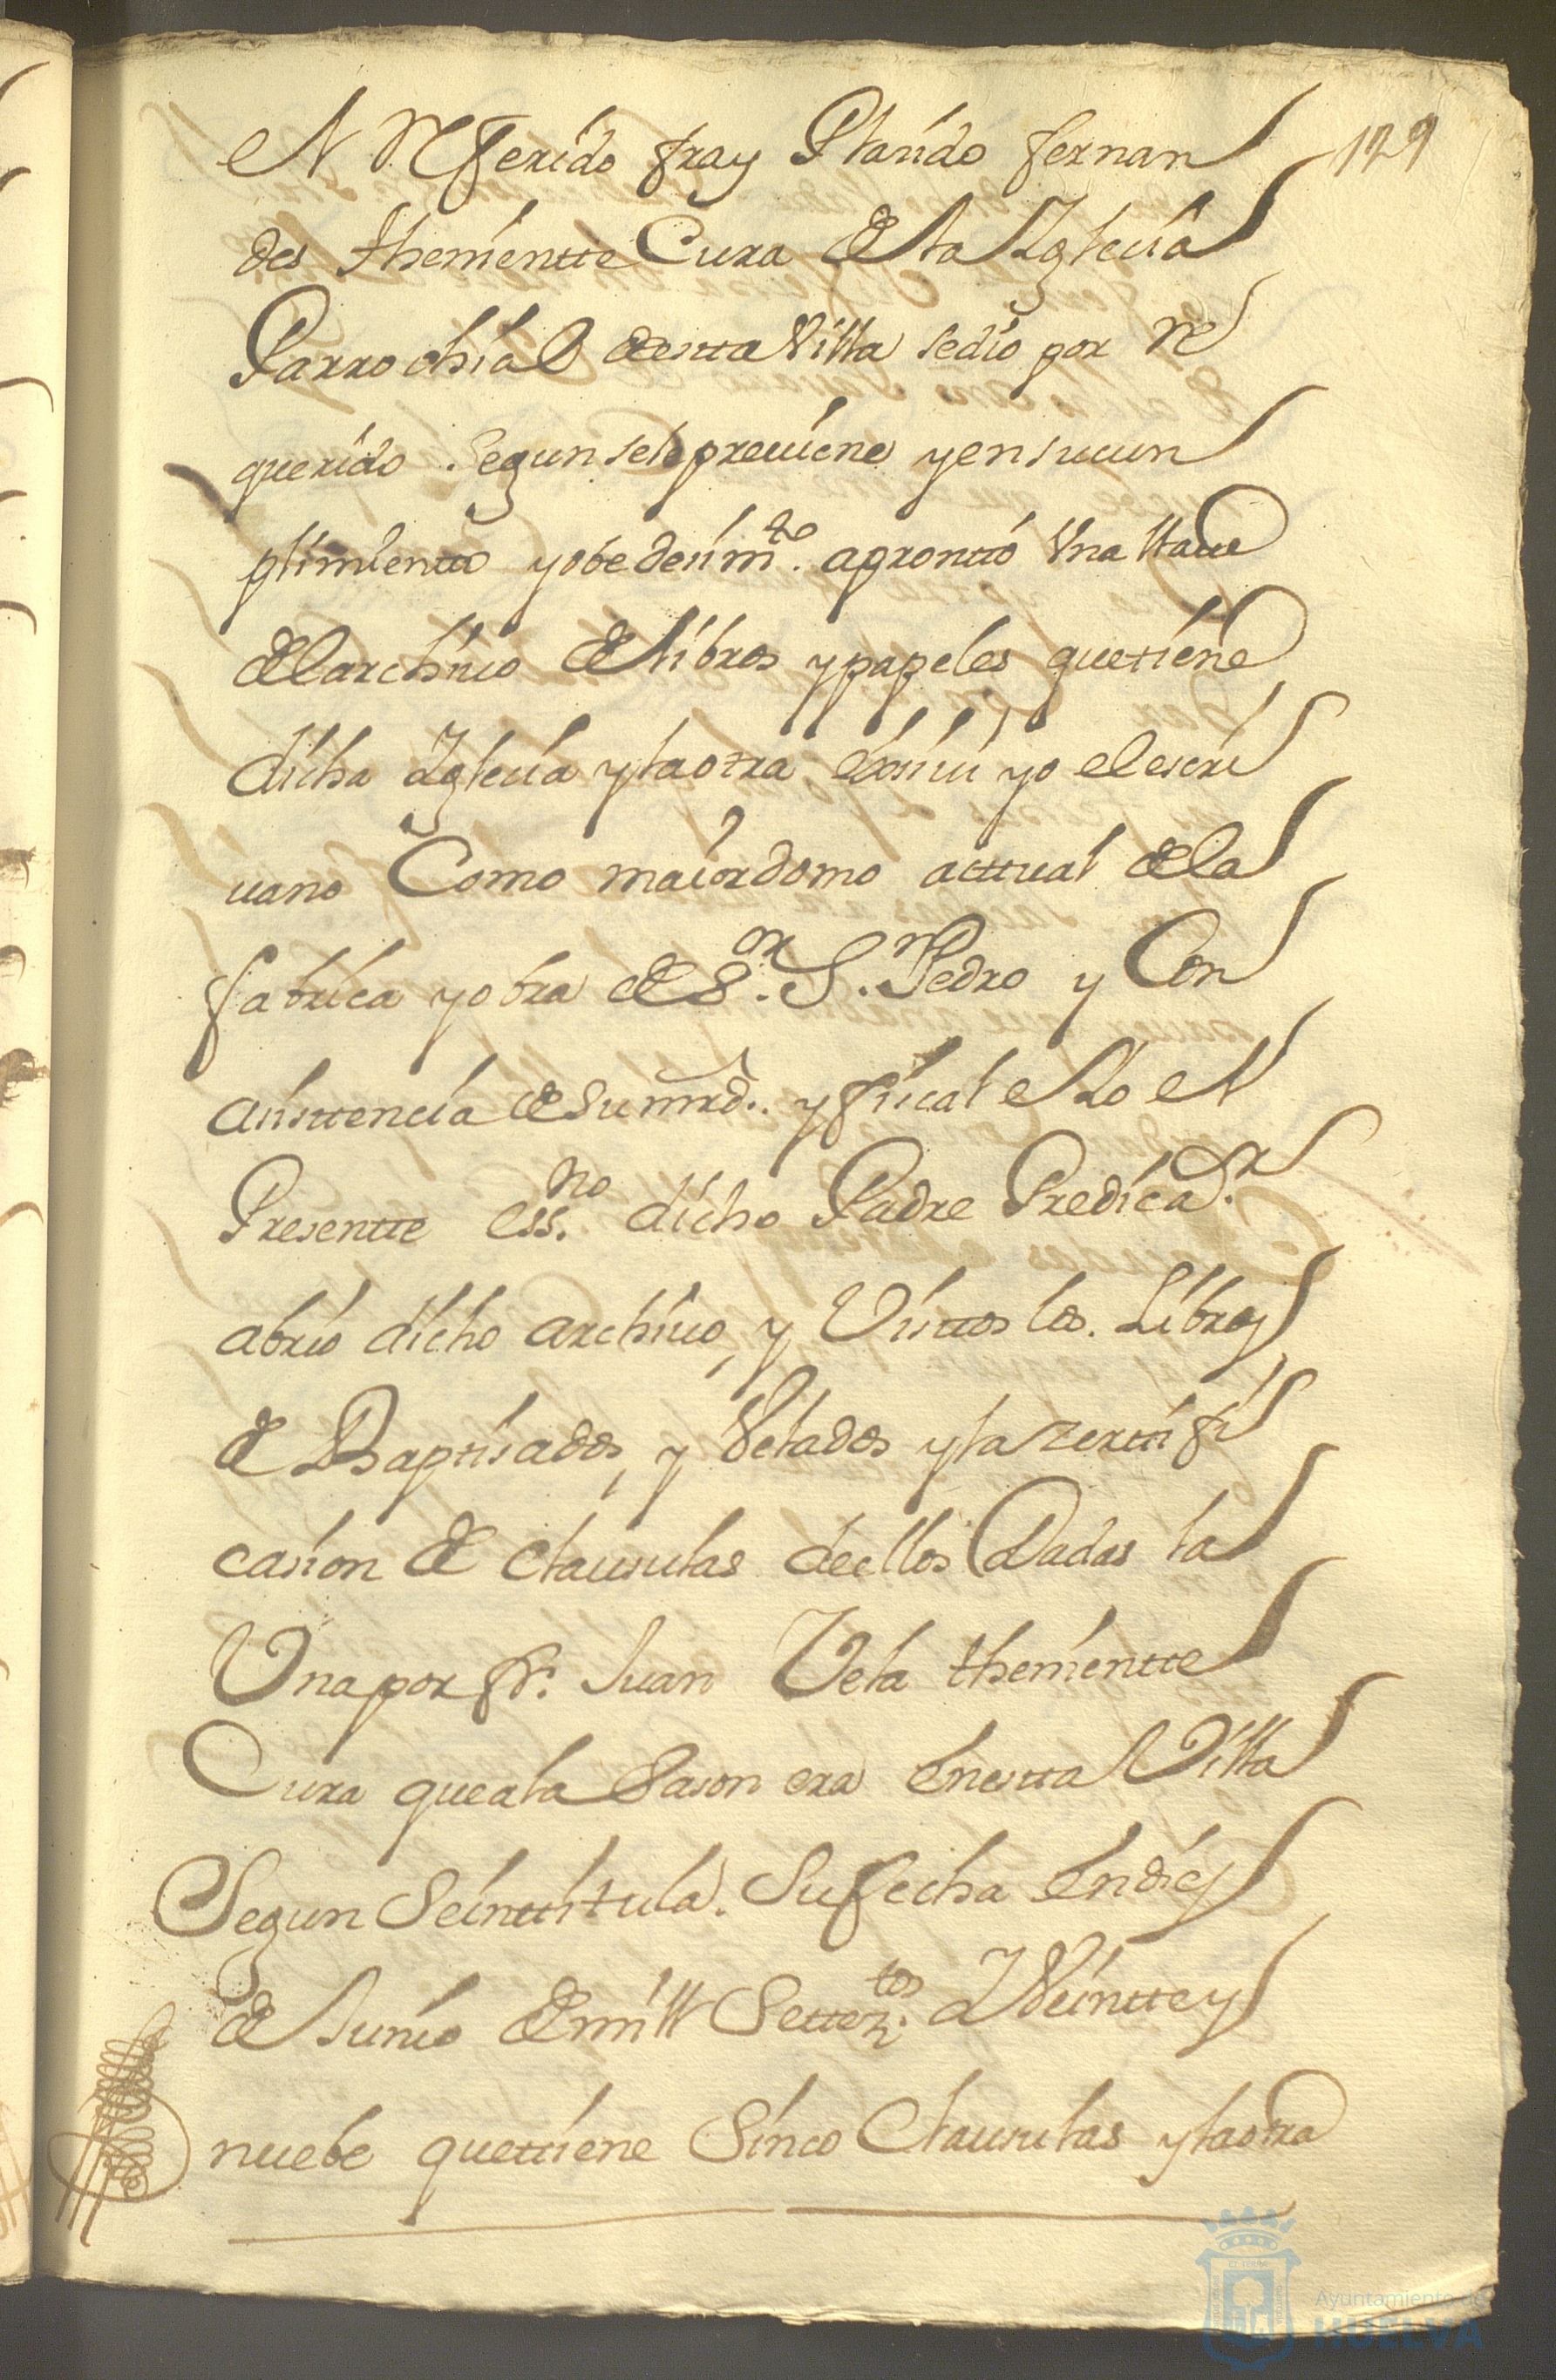 el Referido fray Plasido fernan
129
des thenientte Cura de la Yglesia
Parrochial de estta Villa se dio por re
querido segun se le preuiene y en su cun
plimientto y obedesimto. aprontto Vna llaue
del archiuo de libros y papeles que tiene
dicha Yglesia y la otra exsiui yo el escri
uano Como maiordomo acttual de la
fabrica y obra de Sor. Sn. Pedro y Con
asisttencia de su mrd. y fiscal e Yo el
Presentte essno. dicho Padre Predicador.
abrio dicho archiuo, y Visttos los Libros
de Baptisados, y Velados y la zerttifi
casion de clausulas de ellos Dadas la
Vna por fr. Juan Vela thenientte
Cura que a la Sason era En estta Villa
Segun Se inttitula. Su fecha En dies
de Junio de mill Settez.tos Y Veintte y
nuebe que ttiene Sinco Clausulas y la otra
Ayuntamiento de
HUELVA